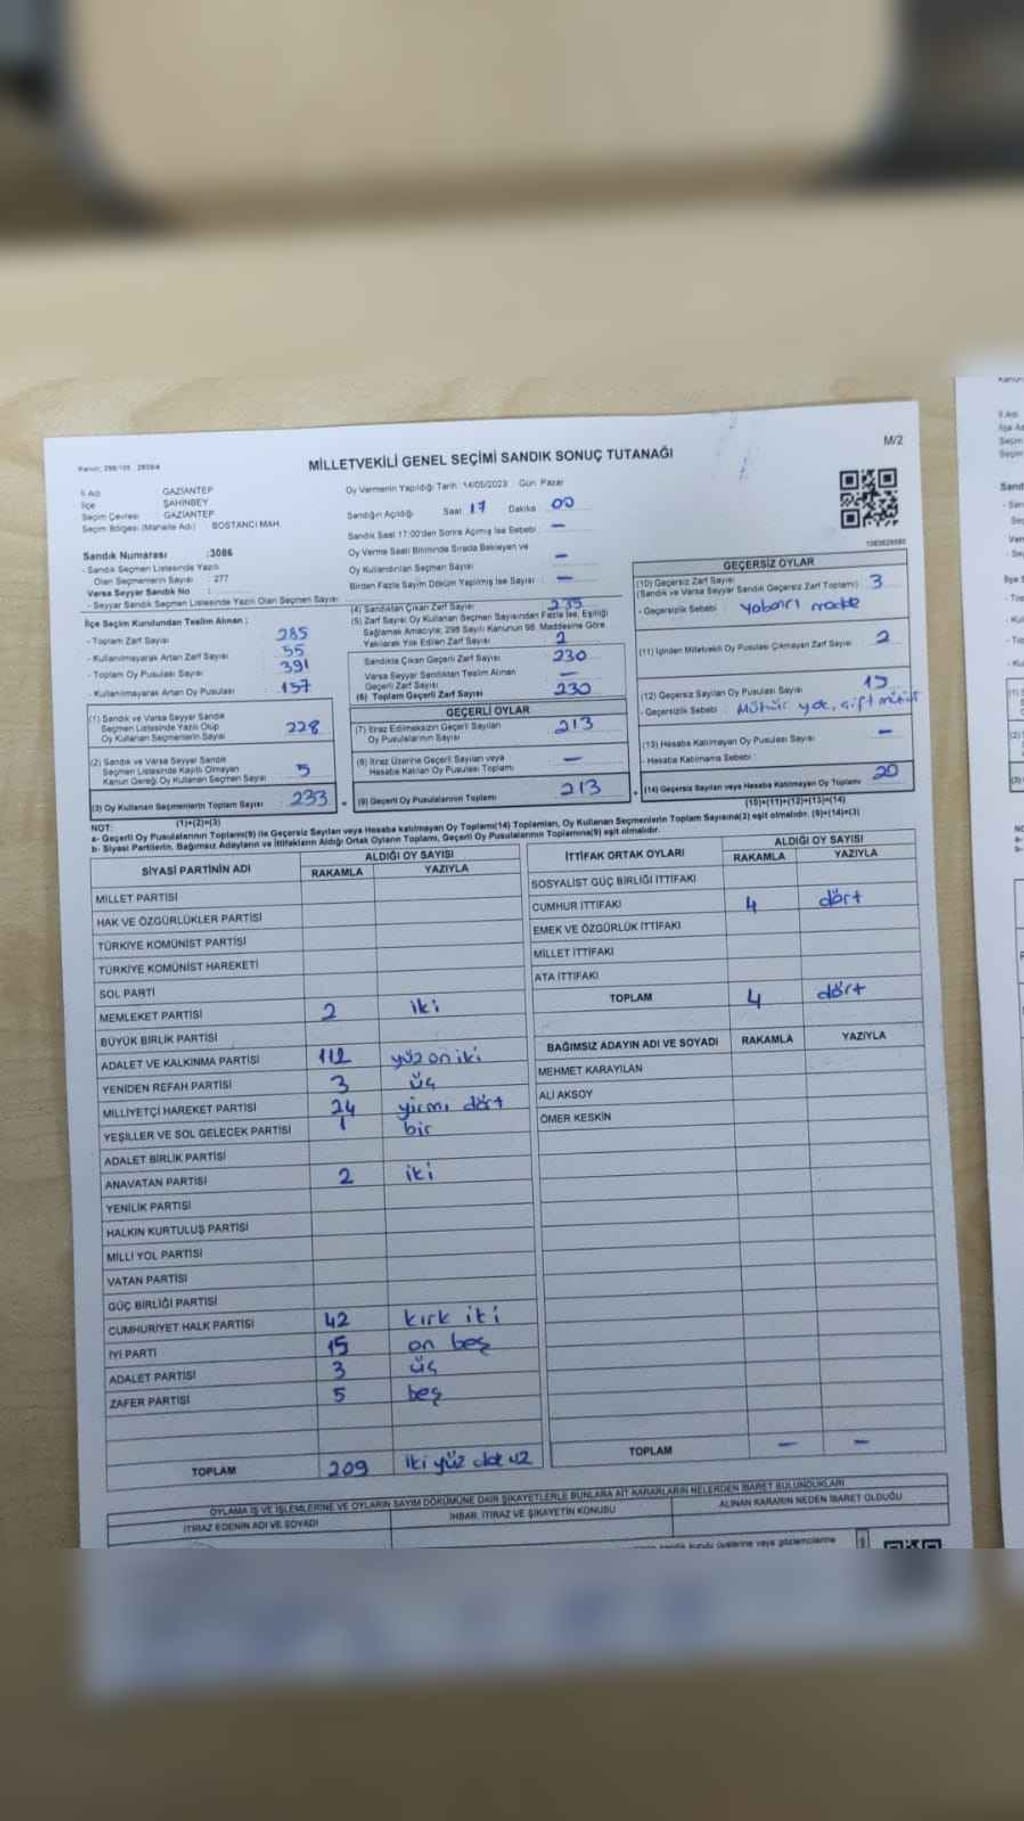 M/2
MİLLETVEKİLİ GENEL SEÇİMİ SANDIK SONUÇ TUTANAĞI
İl Adı GAZİANTEP
İlçe ŞAHİNBEY
Seçim Çevresi GAZİANTEP
Seçim Bölgesi (Mahalle Adı) BOSTANCI MAH.
Sandık Numarası :3086
- Sandık Seçmen Listesinde Yazılı
Olan Seçmenlerin Sayısı : 277
Varsa Seyyar Sandık No :
- Seyyar Sandık Seçmen Listesinde Yazılı Olan Seçmen Sayısı
İlçe Seçim Kurulundan Teslim Alınan :
- Toplam Zarf Sayısı : 285
- Kullanılmayarak Artan Zarf Sayısı : 55
- Toplam Oy Pusulası Sayısı : 391
- Kullanılmayarak Artan Oy Pusulası : 157
(1) Sandık ve Varsa Seyyar Sandık
Seçmen Listesinde Yazılı Olup
Oy Kullanan Seçmenlerin Sayısı 228
(2) Sandık ve Varsa Seyyar Sandık
Seçmen Listesinde Kayıtlı Olmayan
Kanun Gereği Oy Kullanan Seçmen Sayısı 5
(3) Oy Kullanan Seçmenlerin Toplam Sayısı 233
(1)+(2)=(3)
Oy Vermenin Yapıldığı Tarih: 14/05/2023 Gün: Pazar
Sandığın Açıldığı Saat 17 Dakika 00
Sandık Saat 17:00'den Sonra Açılmış İse Sebebi : -
Oy Verme Saati Bitiminde Sırada Bekleyen ve
Oy Kullandırılan Seçmen Sayısı : -
Birden Fazla Sayım Döküm Yapılmış İse Sayısı : -
(4) Sandıktan Çıkan Zarf Sayısı 235
(5) Zarf Sayısı Oy Kullanan Seçmen Sayısından Fazla İse, Eşitliği
Sağlamak Amacıyla; 298 Sayılı Kanunun 98. Maddesine Göre
Yakılarak Yok Edilen Zarf Sayısı 2
Sandıkta Çıkan Geçerli Zarf Sayısı 230
Varsa Seyyar Sandıktan Teslim Alınan
Geçerli Zarf Sayısı -
(6) Toplam Geçerli Zarf Sayısı 230
GEÇERLİ OYLAR
(7) İtiraz Edilmeksizin Geçerli Sayılan
Oy Pusulalarının Sayısı 213
(8) İtiraz Üzerine Geçerli Sayılan veya
Hesaba Katılan Oy Pusulası Toplamı -
(9) Geçerli Oy Pusulalarının Toplamı 213
GEÇERSİZ OYLAR
(10) Geçersiz Zarf Sayısı
(Sandık ve Varsa Seyyar Sandık Geçersiz Zarf Toplamı) 3
- Geçersizlik Sebebi : Yabancı madde
(11) İçinden Milletvekili Oy Pusulası Çıkmayan Zarf Sayısı 2
(12) Geçersiz Sayılan Oy Pusulası Sayısı 15
- Geçersizlik Sebebi : Mühür yok, çift mühür
(13) Hesaba Katılmayan Oy Pusulası Sayısı -
- Hesaba Katılmama Sebebi :
(14) Geçersiz Sayılan veya Hesaba Katılmayan Oy Toplamı 20
(10)+(11)+(12)+(13)=(14)
NOT:
a- Geçerli Oy Pusulalarının Toplamı(9) ile Geçersiz Sayılan veya Hesaba katılmayan Oy Toplamı(14) Toplamları, Oy Kullanan Seçmenlerin Toplam Sayısına(3) eşit olmalıdır. (9)+(14)=(3)
b- Siyasi Partilerin, Bağımsız Adayların ve İttifakların Aldığı Ortak Oyların Toplamı, Geçerli Oy Pusulalarının Toplamına(9) eşit olmalıdır.
SİYASİ PARTİNİN ADI ALDIĞI OY SAYISI
RAKAMLA YAZIYLA
MİLLET PARTİSİ
HAK VE ÖZGÜRLÜKLER PARTİSİ
TÜRKİYE KOMÜNİST PARTİSİ
TÜRKİYE KOMÜNİST HAREKETİ
SOL PARTİ
MEMLEKET PARTİSİ 2 iki
BÜYÜK BİRLİK PARTİSİ
ADALET VE KALKINMA PARTİSİ 112 yüz on iki
YENİDEN REFAH PARTİSİ 3 üç
MİLLİYETÇİ HAREKET PARTİSİ 24 yirmi dört
YEŞİLLER VE SOL GELECEK PARTİSİ 1 bir
ADALET BİRLİK PARTİSİ
ANAVATAN PARTİSİ 2 iki
YENİLİK PARTİSİ
HALKIN KURTULUŞ PARTİSİ
MİLLİ YOL PARTİSİ
VATAN PARTİSİ
GÜÇ BİRLİĞİ PARTİSİ
CUMHURİYET HALK PARTİSİ 42 kırk iki
İYİ PARTİ 15 on beş
ADALET PARTİSİ 3 üç
ZAFER PARTİSİ 5 beş
TOPLAM 209 iki yüz dokuz
İTTİFAK ORTAK OYLARI ALDIĞI OY SAYISI
RAKAMLA YAZIYLA
SOSYALİST GÜÇ BİRLİĞİ İTTİFAKI
CUMHUR İTTİFAKI 4 dört
EMEK VE ÖZGÜRLÜK İTTİFAKI
MİLLET İTTİFAKI
ATA İTTİFAKI
TOPLAM 4 dört
BAĞIMSIZ ADAYIN ADI VE SOYADI RAKAMLA YAZIYLA
MEHMET KARAYILAN
ALİ AKSOY
ÖMER KESKİN
TOPLAM - -
OYLAMA İŞ VE İŞLEMLERİNE VE OYLARIN SAYIM DÖKÜMÜNE DAİR ŞİKAYETLERLE BUNLARA AİT KARARLARIN NELERDEN İBARET BULUNDUKLARI
İTİRAZ EDENİN ADI VE SOYADI İHBAR, İTİRAZ VE ŞİKAYETİN KONUSU ALINAN KARARIN NEDEN İBARET OLDUĞU